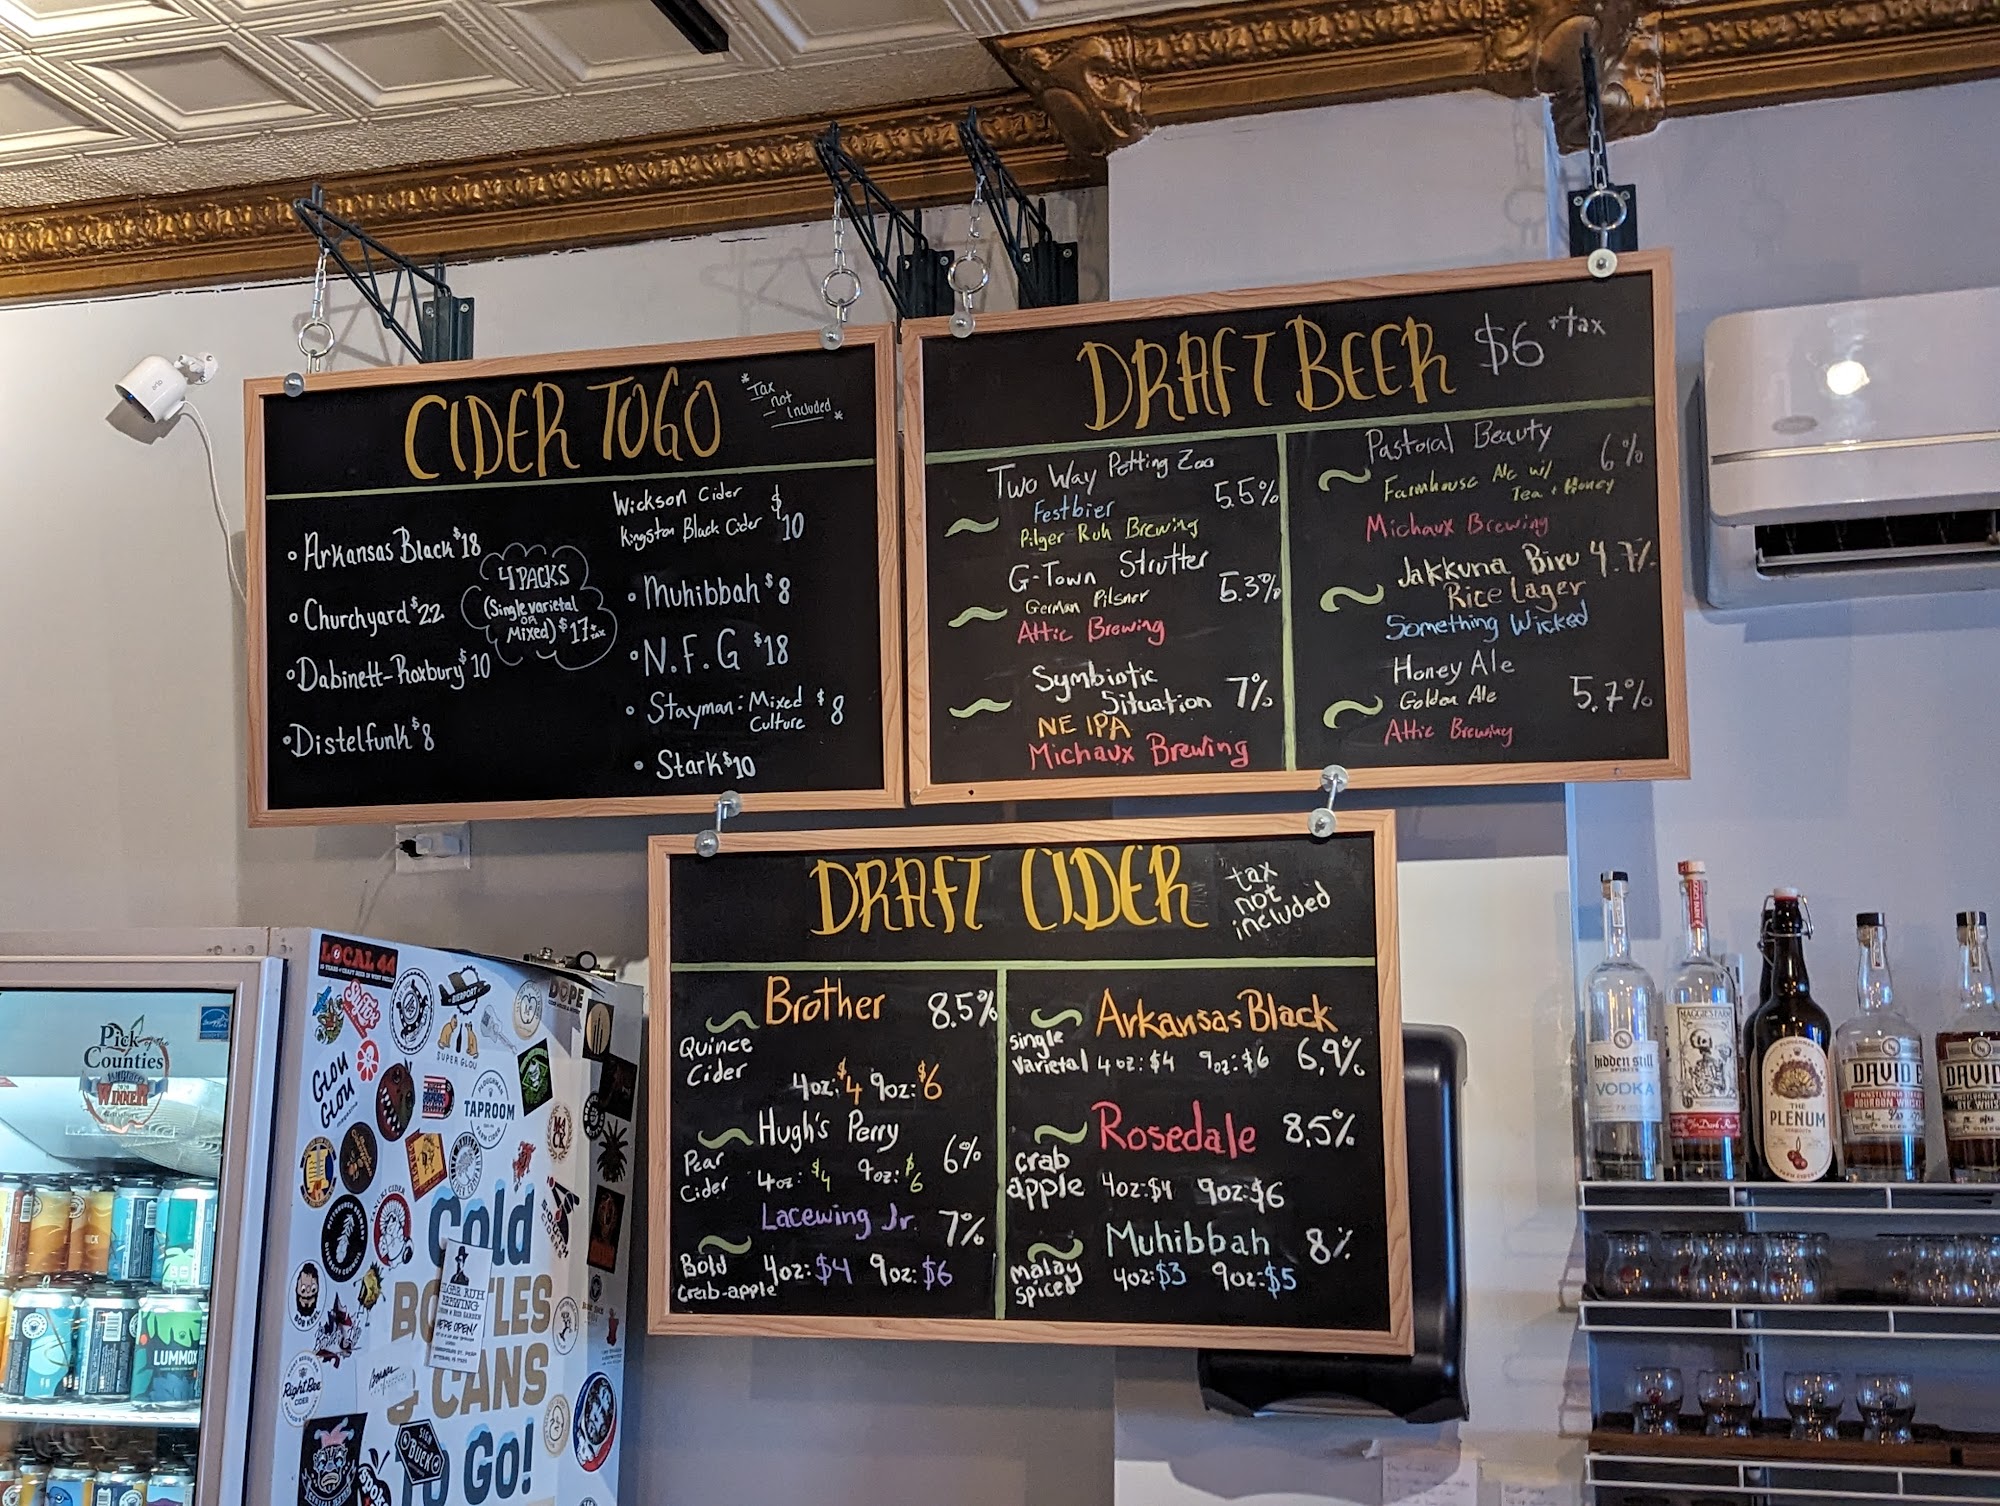 CIDER TOGO
*Tax
not
included*
Arkansas Black $18
Churchyard $22
Dabinett-Roxbury $10
Distelfunk $8
4 PACKS
(Single varietal
OR
Mixed) $17 + TAX
Wickson Cider
Kingston Black Cider
$10
Muhibbah $8
N.F.G $18
Stayman: Mixed
Culture
$8
Stark $10
DRAFT BEER $6 + tax
Two Way Petting Zoo
Festbier
5.5%
Pilger Ruh Brewing
G-Town Strutter
German Pilsner
5.3%
Attic Brewing
Symbiotic
Situation 7%
NE IPA
Michaux Brewing
Pastoral Beauty
6%
Farmhouse Ale w/
Tea + Honey
Michaux Brewing
Jakkuna Biru 4.7%
Rice Lager
Something Wicked
Honey Ale
Golden Ale
5.7%
Attic Brewing
DRAFT CIDER
tax
not
included
Brother 8.5%
Quince
Cider
4oz: $4 9oz: $6
Hugh's Perry
6%
Pear
Cider
4oz: $4 9oz: $6
Lacewing Jr.
7%
Bold
Crab-apple
4oz: $4 9oz: $6
Arkansas Black
single
varietal
4oz: $4 9oz: $6 6.9%
Rosedale 8.5%
crab
apple
4oz: $4 9oz: $6
Muhibbah 8%
malay
spiced
4oz: $3 9oz: $5
arlo
Pick of the
Counties
2020
WINNER
LUMMOX
LOCAL 44
BIERPORT
DOPE
SUPER GLOU
GLOU
GLOU
PLOUGHMAN
TAPROOM
FARM CIDER
Cold
BOTTLES
& CANS
TO GO!
BREWING
WE'RE OPEN!
Right Bee
CIDER
SICK
BUCK
hidden still
SPIRITS
VODKA
MAGGIE'S FARM
PLOUGHMAN
THE
PLENUM
FARM CIDERY
DAVID E
PENNSYLVANIA
BOURBON WHISK
DAVID
PENNSYLVANIA
RYE WHIS